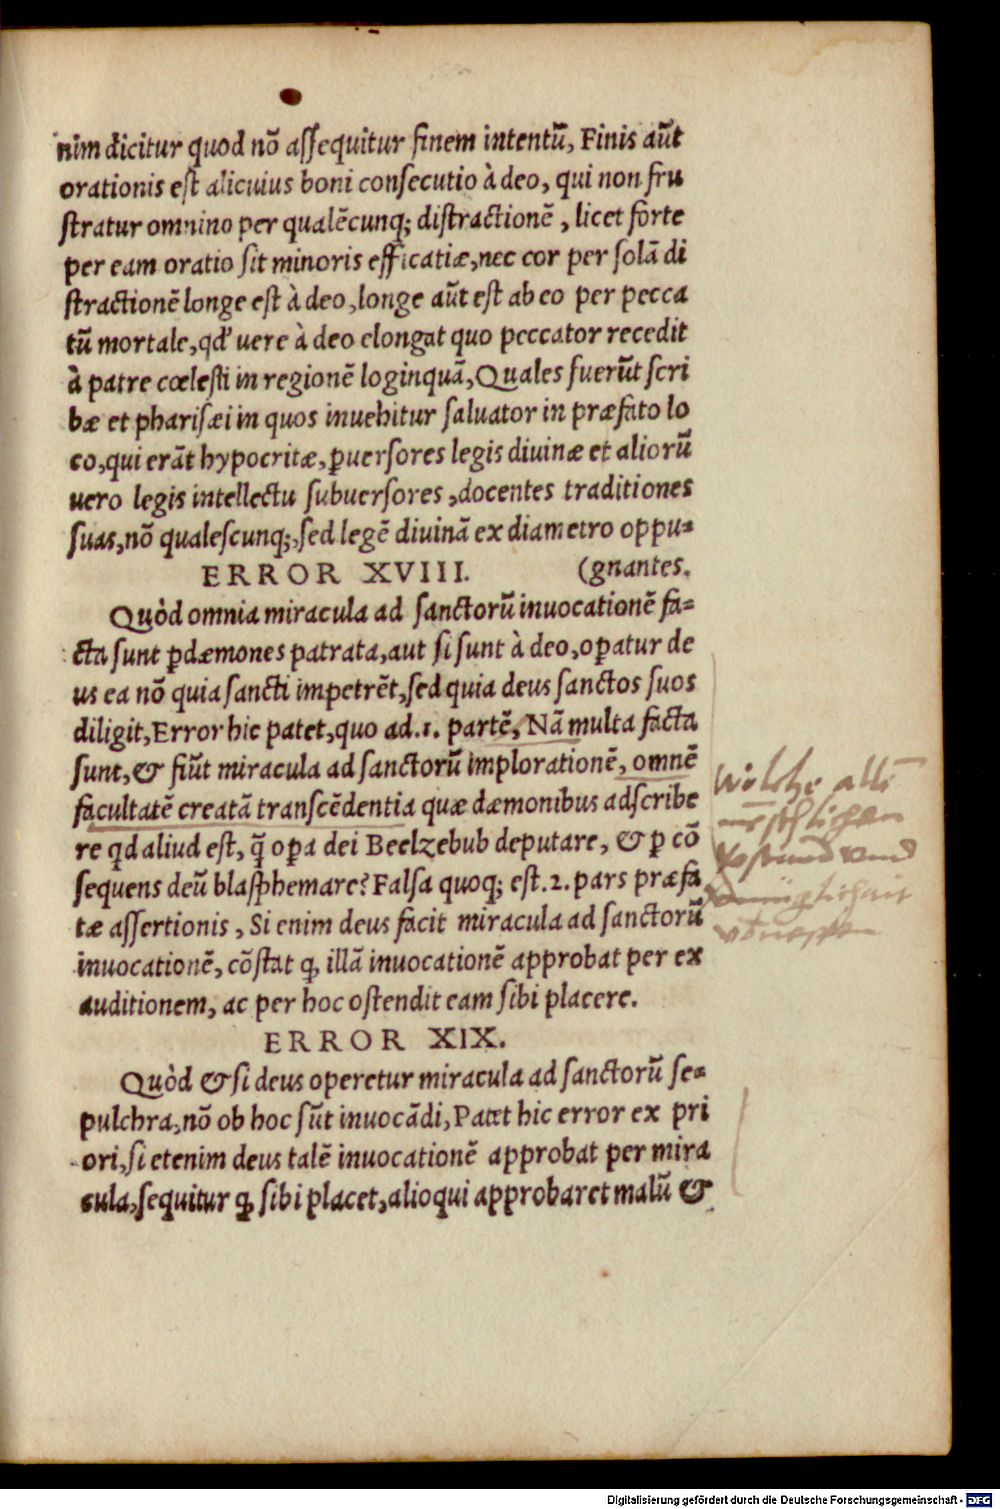 nim dicitur quod nõ assequitur finem intentũ, Finis aũt
orationis est alicuius boni consecutio à deo, qui non fru
stratur omnino per qualẽcunq; distractionẽ, licet forte
per eam oratio sit minoris efficatiæ, nec cor per solã di
stractionẽ longe est à deo, longe aũt est ab eo per pecca
tũ mortale, qď uere à deo elongat quo peccator recedit
à patre cœlesti in regionẽ loginquã, Quales fuerũt scri
bæ et pharisæi in quos inuehitur saluator in præfato lo
co, qui erãt hypocritæ, ꝑuersores legis diuinæ et aliorũ
uero legis intellectu subuersores, docentes traditiones
suas, nõ qualescunq;, sed legẽ diuinã ex diametro oppu⸗
ERROR XVIII. (gnantes.
Quòd omnia miracula ad sanctorũ inuocationẽ fa⸗
cta sunt ꝑ dæmones patrata, aut si sunt à deo, oꝑatur de
us ea nõ quia sancti impetrẽt, sed quia deus sanctos suos
diligit, Error hic patet, quo ad .1. partẽ, Nã multa facta
sunt, & fiũt miracula ad sanctorũ implorationẽ, omnẽ
facultatẽ creatã transcẽdentia quæ dæmonibus adscribe
re qd aliud est, q̃ oꝑa dei Beelzebub deputare, & ꝑ cõ
sequens deũ blasphemare? Falsa quoq; est .2. pars præfa
tæ assertionis, Si enim deus facit miracula ad sanctorũ
inuocationẽ, cõstat ꝙ illã inuocationẽ approbat per ex
auditionem, ac per hoc ostendit eam sibi placere.
Welche alle
menschlichen
verstand vnd
ERROR XIX.
Quòd & si deus operetur miracula ad sanctorũ se⸗
pulchra, nõ ob hoc sũt inuocãdi, Patet hic error ex pri
ori, si etenim deus talẽ inuocationẽ approbat per mira
cula, sequitur ꝙ sibi placet, alioqui approbaret malũ &
Digitalisierung gefördert durch die Deutsche Forschungsgemeinschaft - DFG